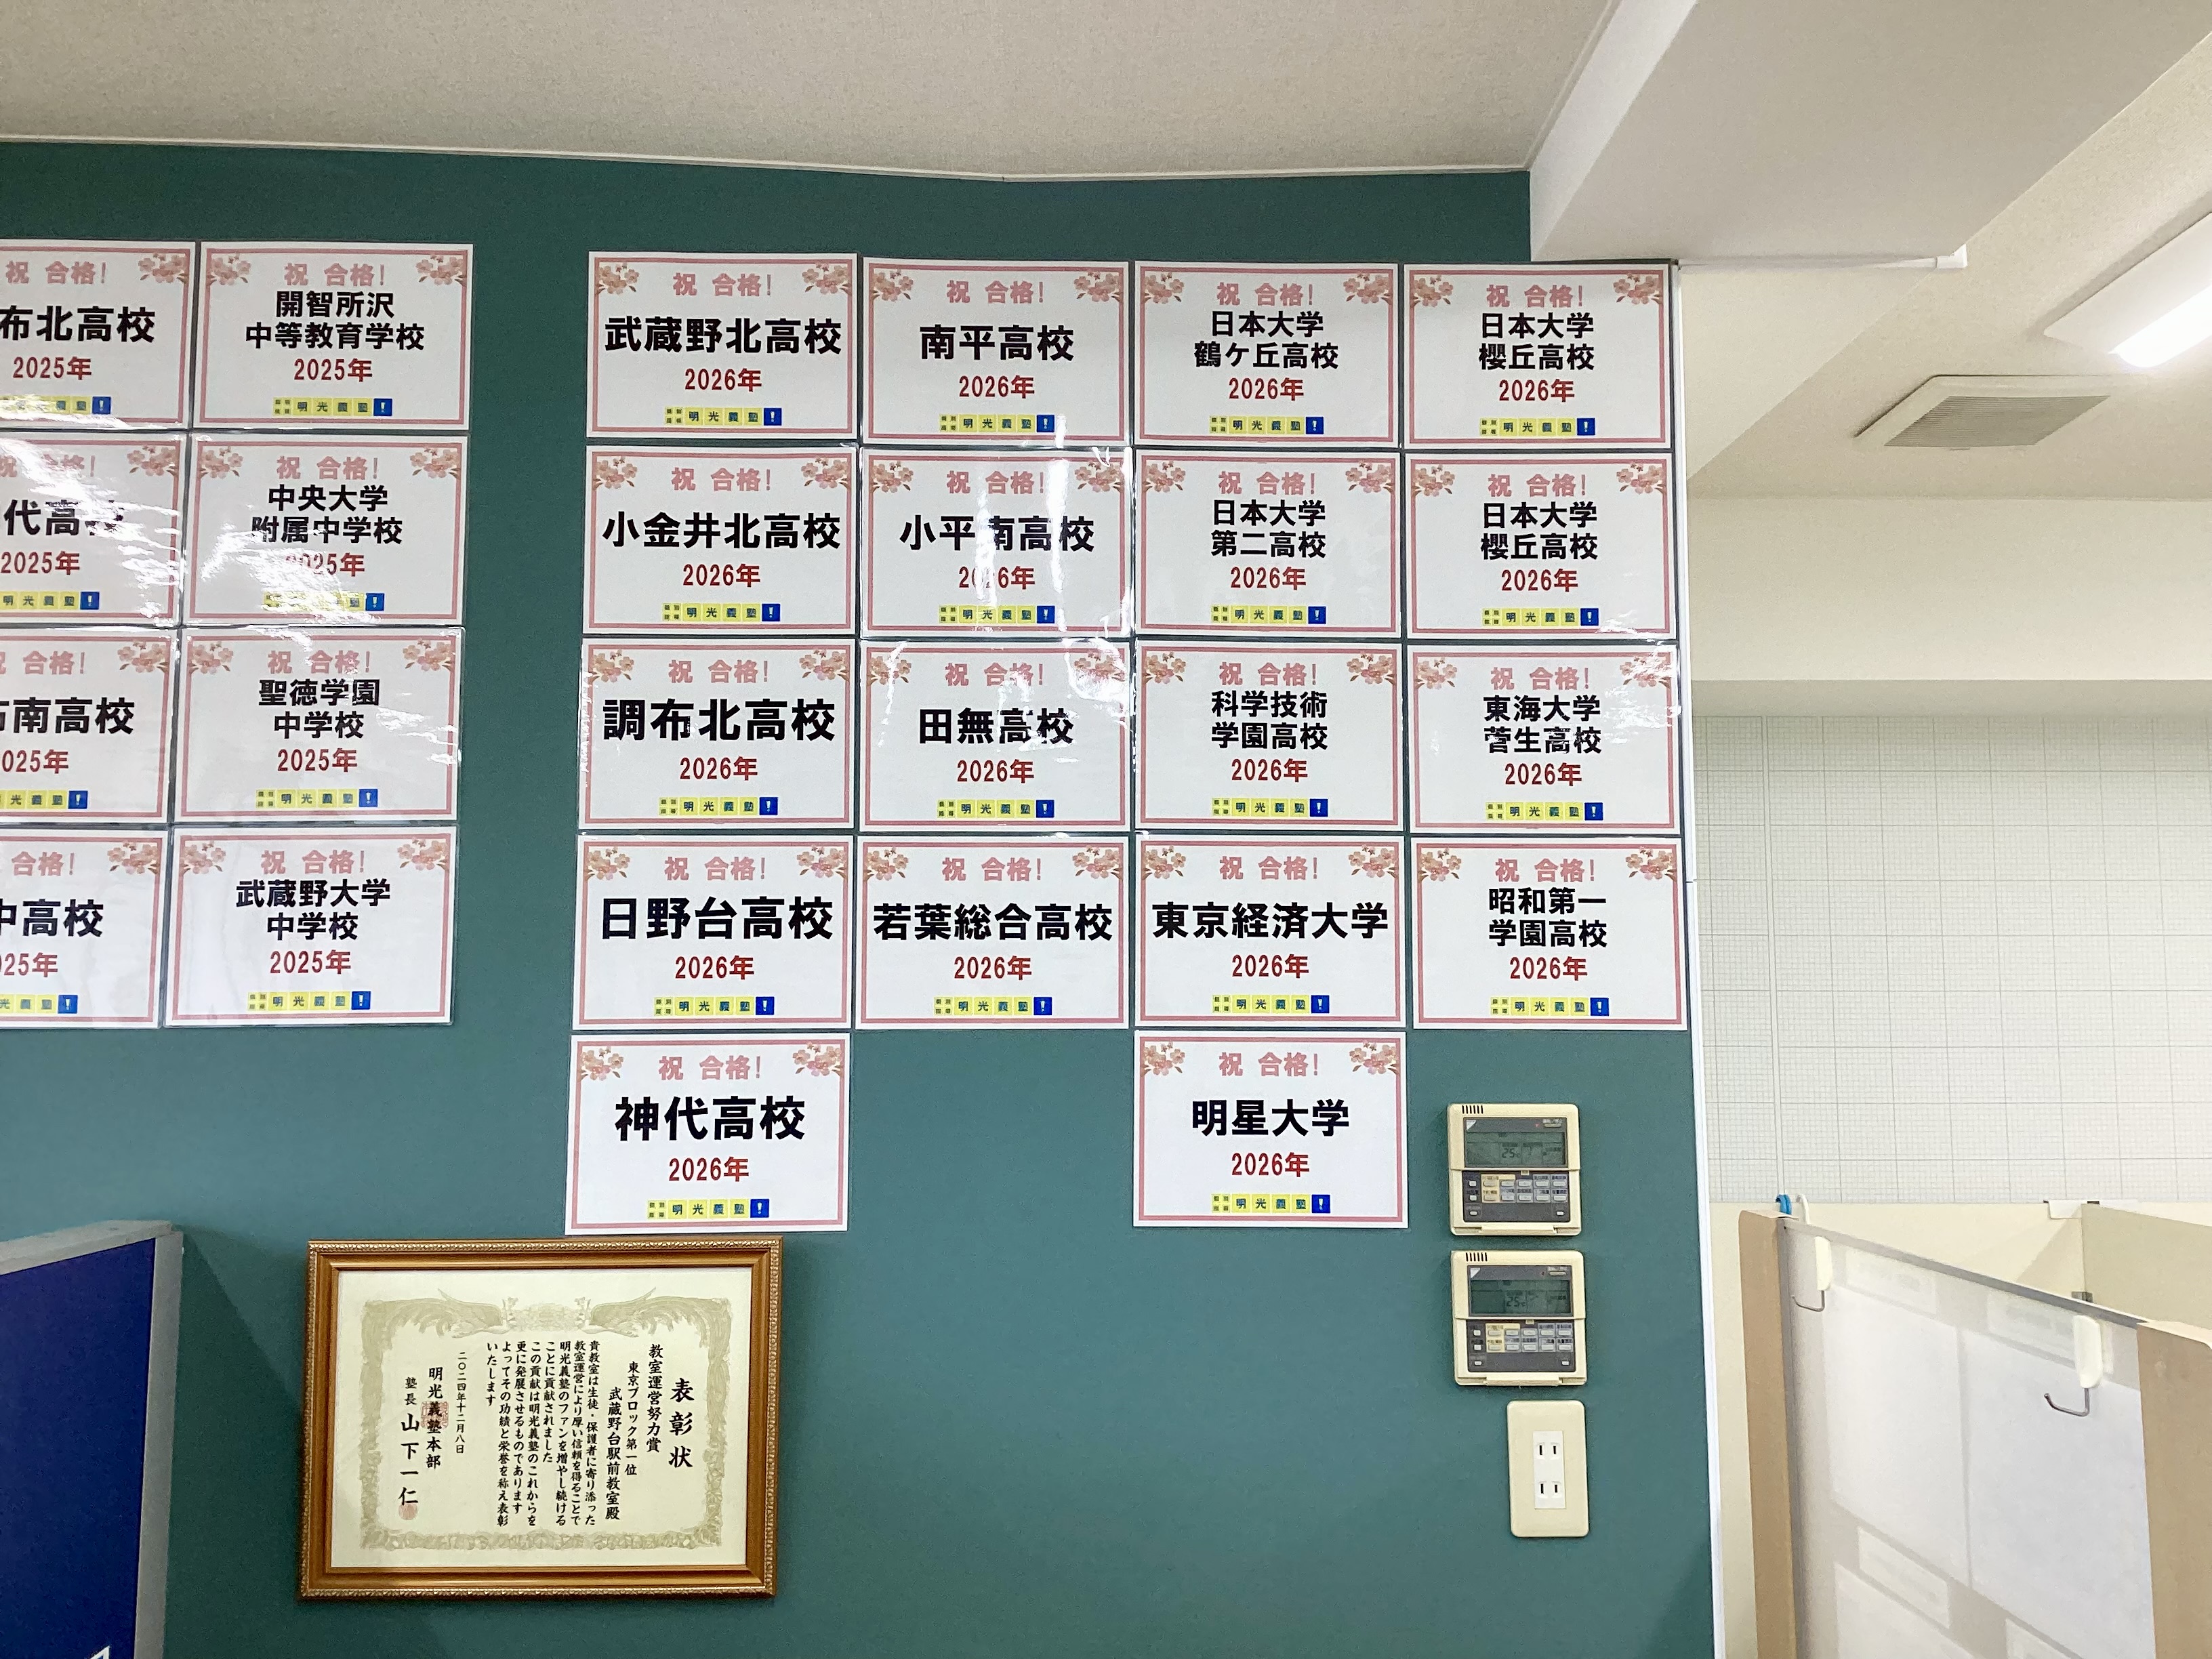 祝 合格!
布北高校
2025年
義 塾 !
祝 合格!
開智所沢
中等教育学校
2025年
個別指導 明光義塾!
祝 合格!
代高校
2025年
明光義塾!
祝 合格!
中央大学
附属中学校
2025年
塾!
祝 合格!
南高校
025年
光義塾!
祝 合格!
聖徳学園
中学校
2025年
個別指導 明光義塾!
合格!
中高校
025年
光義塾!
祝 合格!
武蔵野大学
中学校
2025年
個別指導 明光義塾!
祝 合格!
武蔵野北高校
2026年
個別指導 明光義塾!
祝 合格!
小金井北高校
2026年
個別指導 明光義塾!
祝 合格!
調布北高校
2026年
個別指導 明光義塾!
祝 合格!
日野台高校
2026年
個別指導 明光義塾!
祝 合格!
神代高校
2026年
個別指導 明光義塾!
祝 合格!
南平高校
2026年
個別指導 明光義塾!
祝 合格!
小平南高校
2026年
個別指導 明光義塾!
祝 合格!
田無高校
2026年
個別指導 明光義塾!
祝 合格!
若葉総合高校
2026年
個別指導 明光義塾!
祝 合格!
日本大学
鶴ケ丘高校
2026年
個別指導 明光義塾!
祝 合格!
日本大学
第二高校
2026年
個別指導 明光義塾!
祝 合格!
科学技術
学園高校
2026年
個別指導 明光義塾!
祝 合格!
東京経済大学
2026年
個別指導 明光義塾!
祝 合格!
明星大学
2026年
個別指導 明光義塾!
祝 合格!
日本大学
櫻丘高校
2026年
個別指導 明光義塾!
祝 合格!
日本大学
櫻丘高校
2026年
個別指導 明光義塾!
祝 合格!
東海大学
菅生高校
2026年
個別指導 明光義塾!
祝 合格!
昭和第一
学園高校
2026年
個別指導 明光義塾!
表彰状
教室運営努力賞
東京ブロック第一位
武蔵野台駅前教室殿
貴教室は生徒・保護者に寄り添った
教室運営により厚い信頼を得ることで
明光義塾のファンを増やし続ける
ことに貢献されました
この貢献は明光義塾のこれからを
更に発展させるものであります
よってその功績と栄誉を称え表彰
いたします
二〇二四年十二月八日
明光義塾本部
塾長 山下一仁
25
25